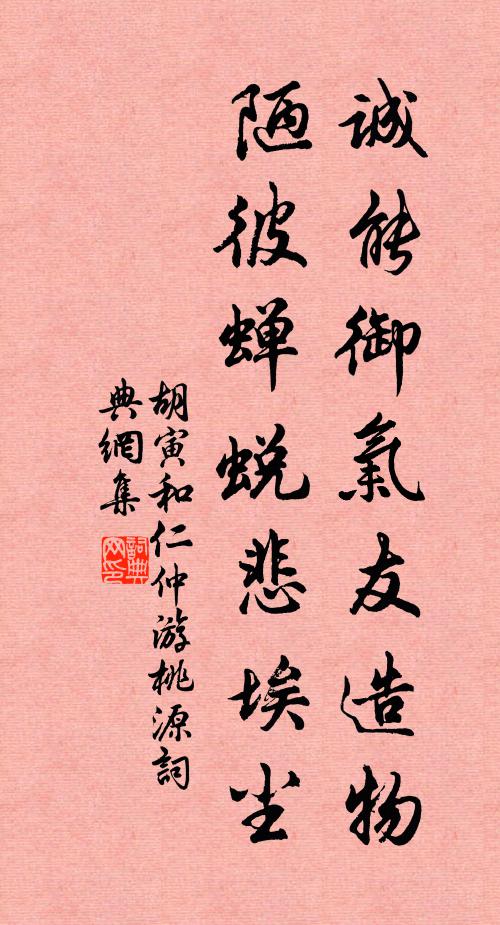 誠能御氣友造物
陋彼蟬蛻悲埃尘
胡寅和仁仲游桃源詞
典網集
詞典
网印